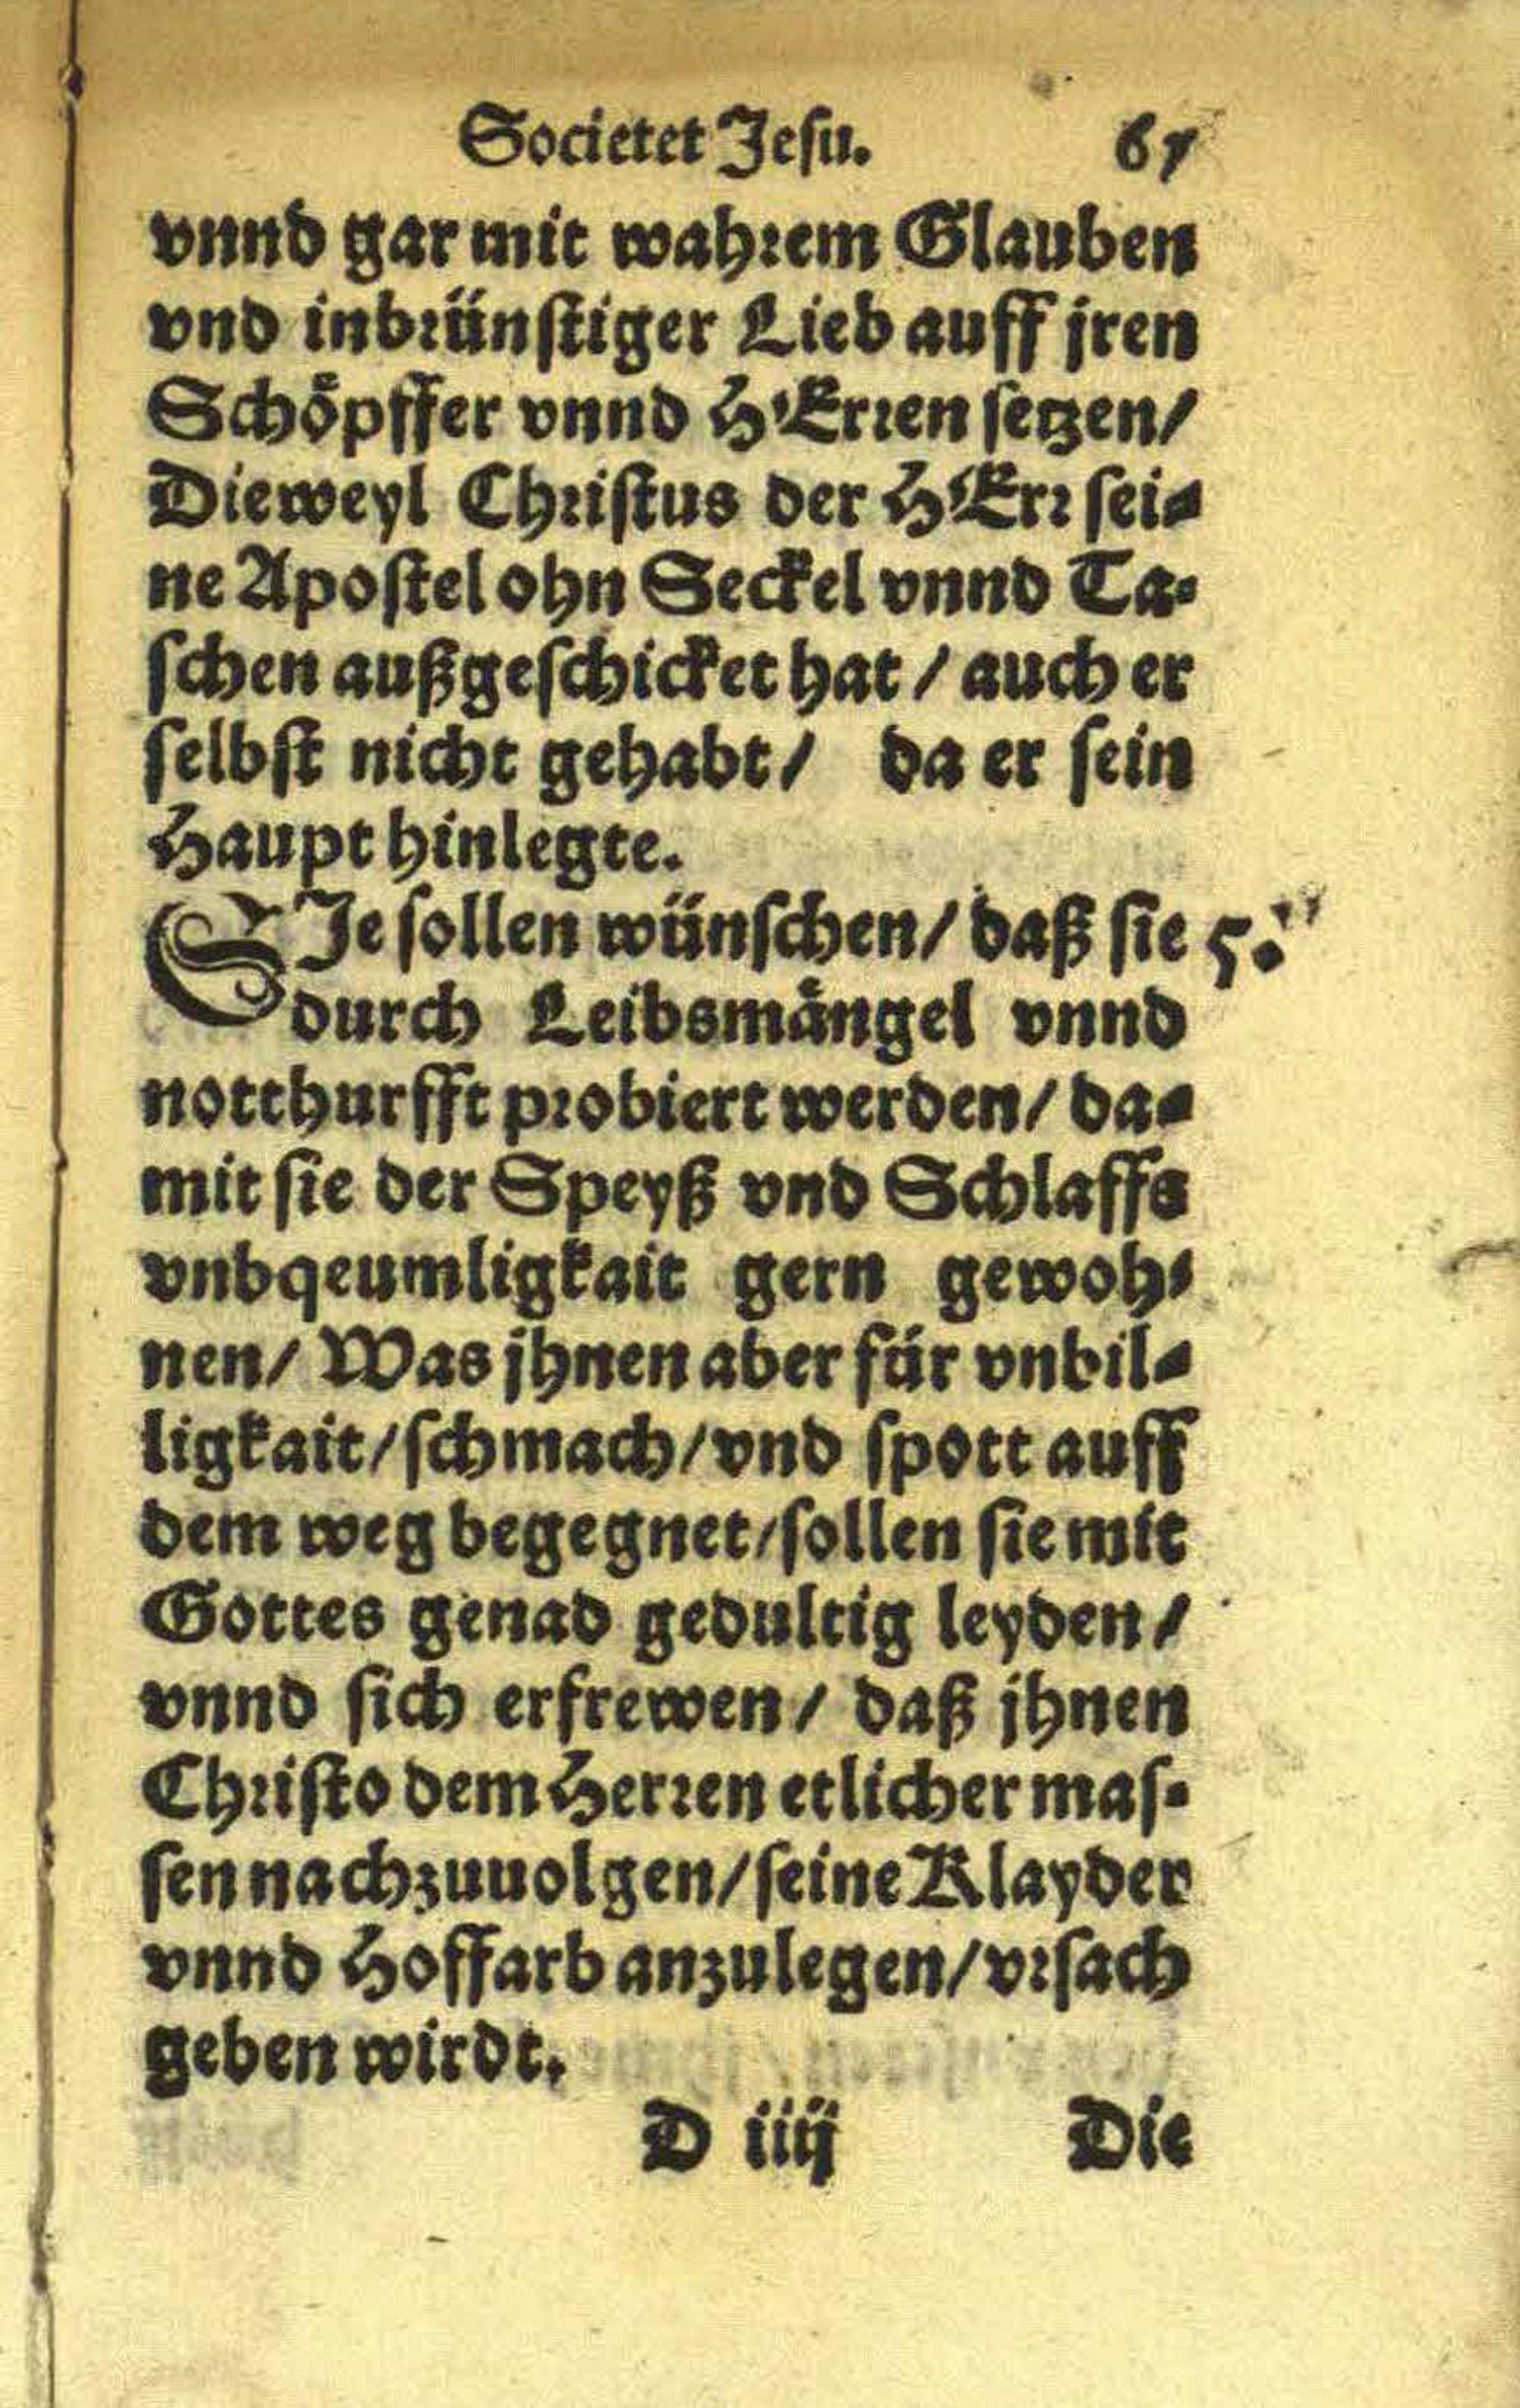 Societet Jesu. 67
vnnd gar mit wahrem Glauben
vnd inbrünstiger Lieb auff jren
Schöpffer vnnd HErren setzen/
Dieweyl Christus der HErr sei-
ne Apostel ohn Seckel vnnd Ta-
schen außgeschicket hat / auch er
selbst nicht gehabt / da er sein
Haupt hinlegte.
SJe sollen wünschen/ daß sie 5.
durch Leibsmängel vnnd
notthurfft probiert werden/ da-
mit sie der Speyß vnd Schlaffs
vnbqeumligkait gern gewoh-
nen/ Was jhnen aber für vnbil-
ligkait/schmach/vnd spott auff
dem weg begegnet/sollen sie mit
Gottes genad gedultig leyden/
vnnd sich erfrewen/ daß jhnen
Christo dem Herren etlicher mas-
sen nachzuuolgen/seine Klayder
vnnd Hoffarb anzulegen/vrsach
geben wirdt.
D iiij Die